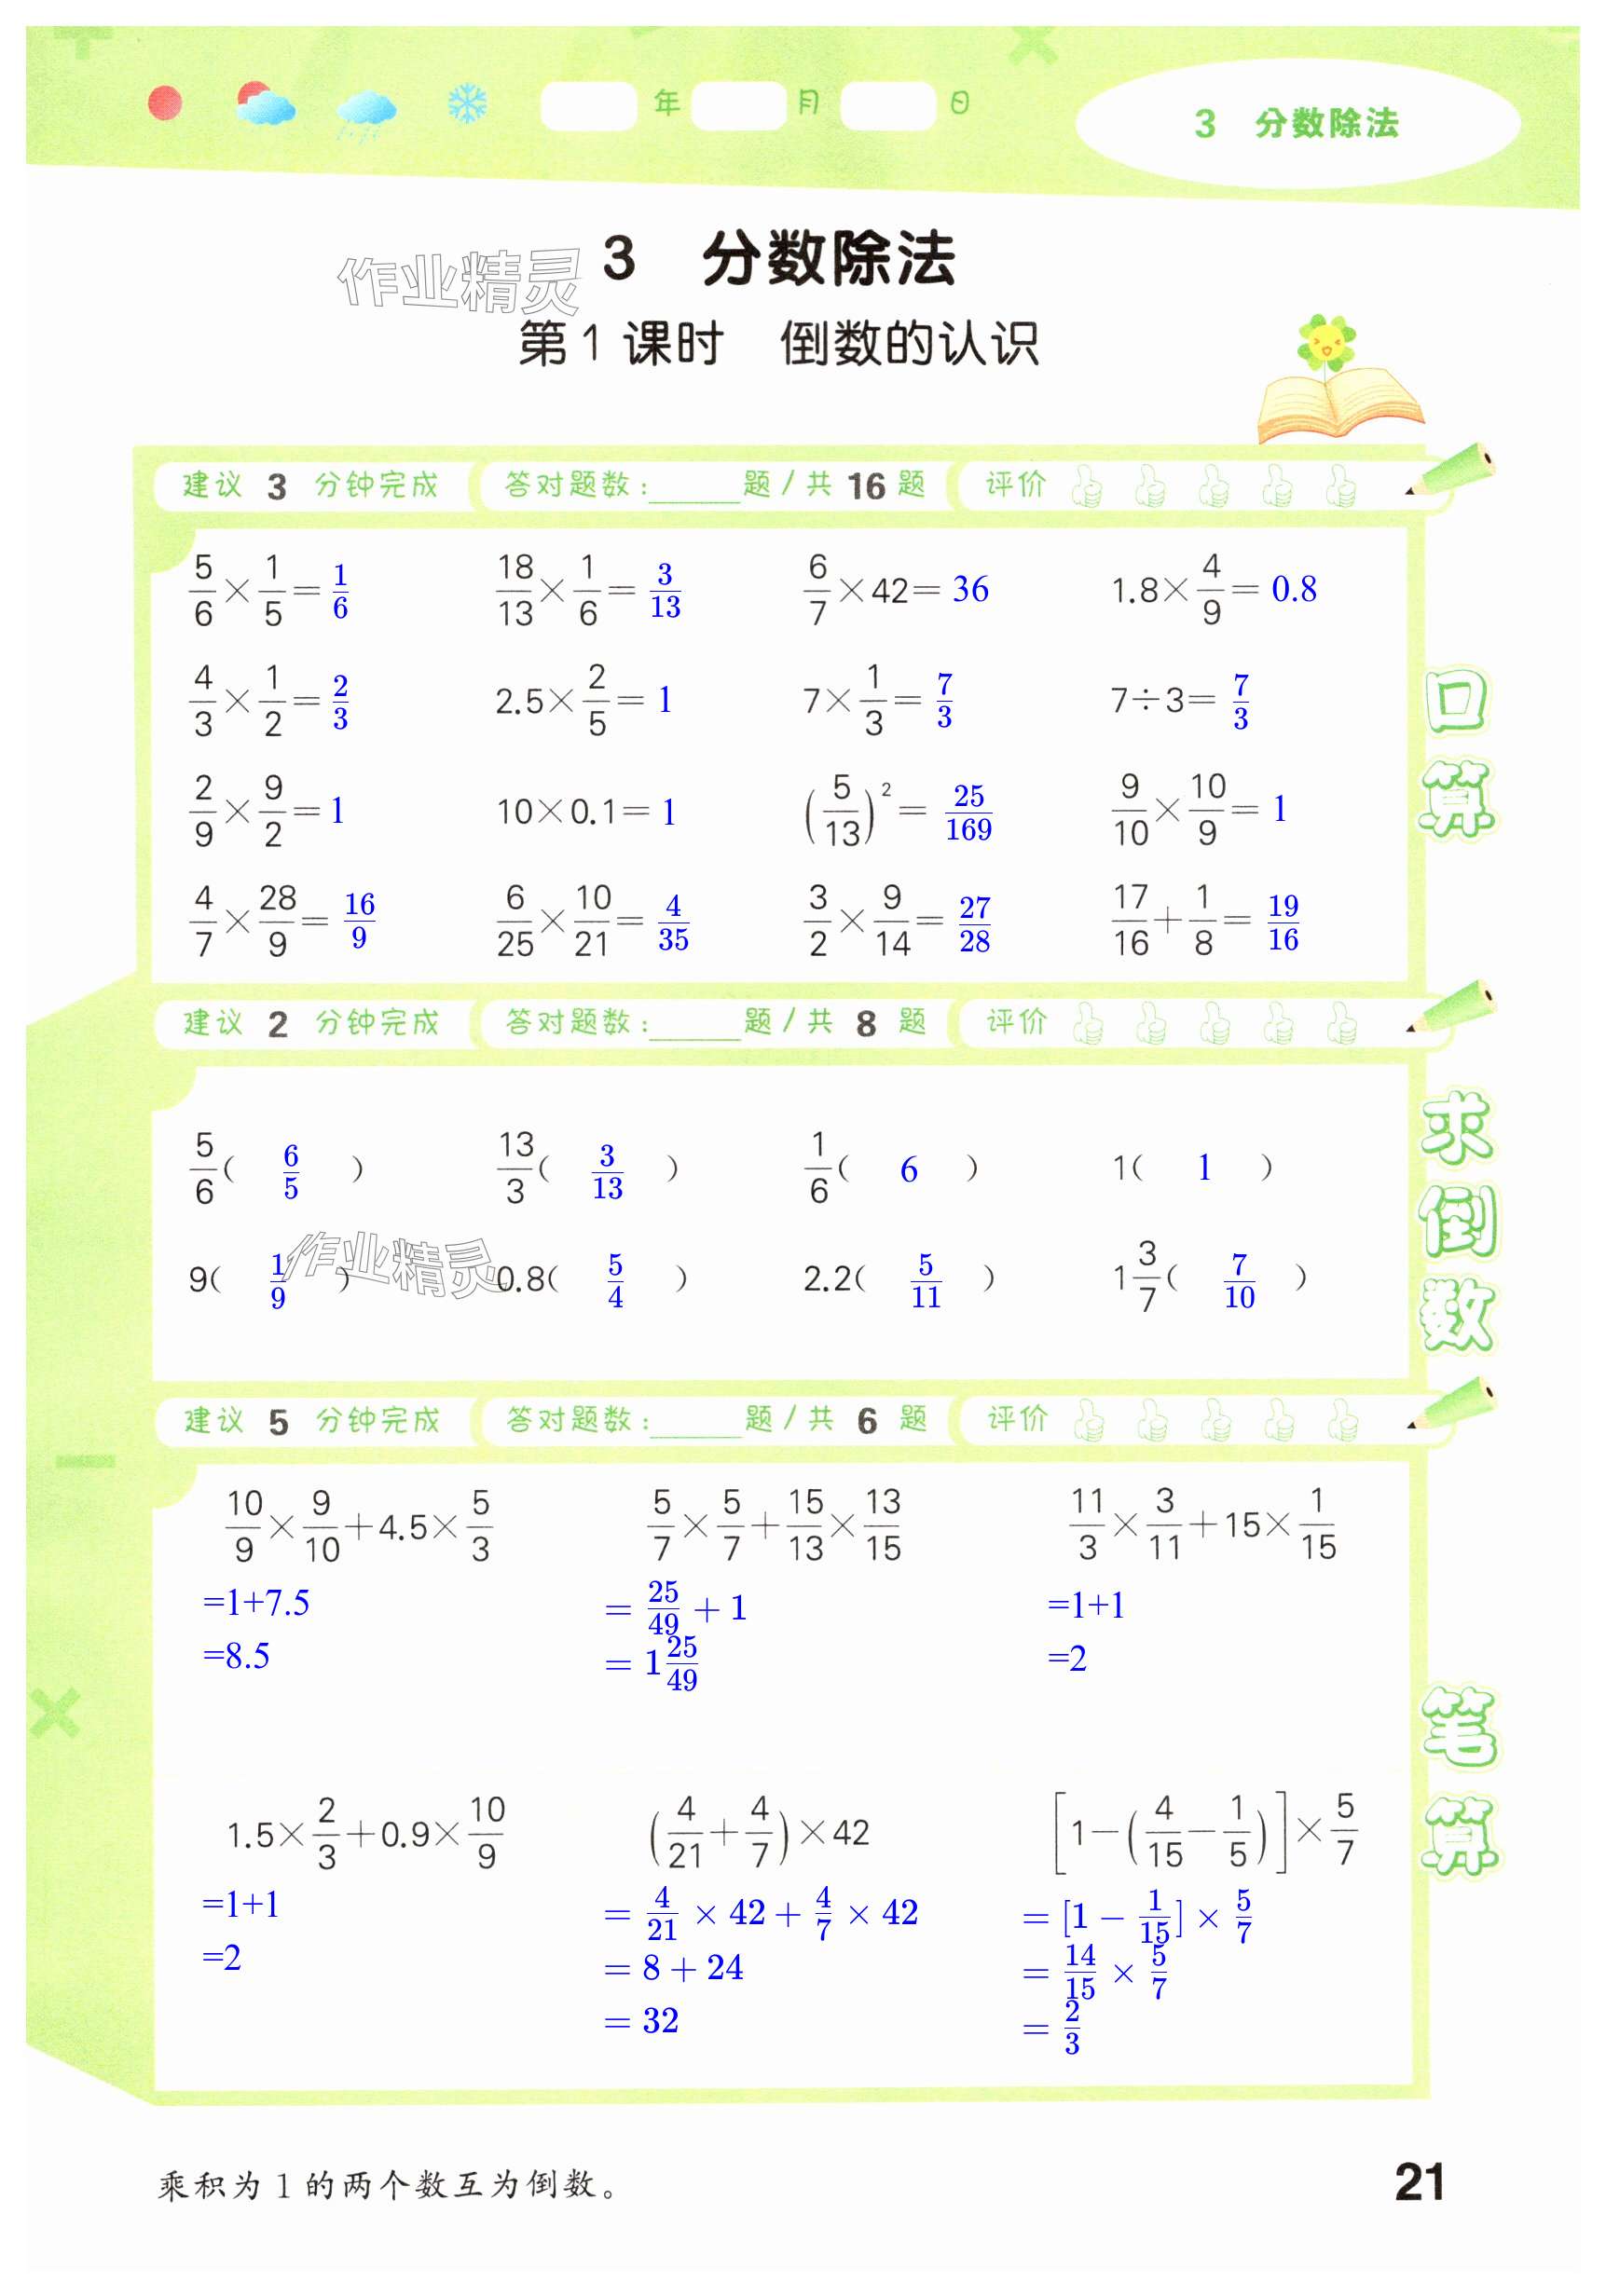 年 月 日
3 分数除法
作业精灵
3 分数除法
第1课时 倒数的认识
建议 3 分钟完成 答对题数:_____题/共 16 题 评价
5/6×1/5=1/6 18/13×1/6=3/13 6/7×42=36 1.8×4/9=0.8
4/3×1/2=2/3 2.5×2/5=1 7×1/3=7/3 7÷3=7/3
2/9×9/2=1 10×0.1=1 (5/13)²=25/169 9/10×10/9=1
4/7×28/9=16/9 6/25×10/21=4/35 3/2×9/14=27/28 17/16+1/8=19/16
口算
建议 2 分钟完成 答对题数:_____题/共 8 题 评价
5/6( 6/5 ) 13/3( 3/13 ) 1/6( 6 ) 1( 1 )
9( 1/9 ) 0.8( 5/4 ) 2.2( 5/11 ) 1 3/7( 7/10 )
作业精灵
求倒数
建议 5 分钟完成 答对题数:_____题/共 6 题 评价
10/9×9/10+4.5×5/3 5/7×5/7+15/13×13/15 11/3×3/11+15×1/15
=1+7.5 =25/49+1 =1+1
=8.5 =1 25/49 =2
1.5×2/3+0.9×10/9 (4/21+4/7)×42 [1-(4/15-1/5)]×5/7
=1+1 =4/21×42+4/7×42 =[1-1/15]×5/7
=2 =8+24 =14/15×5/7
=32 =2/3
笔算
乘积为1的两个数互为倒数。
21